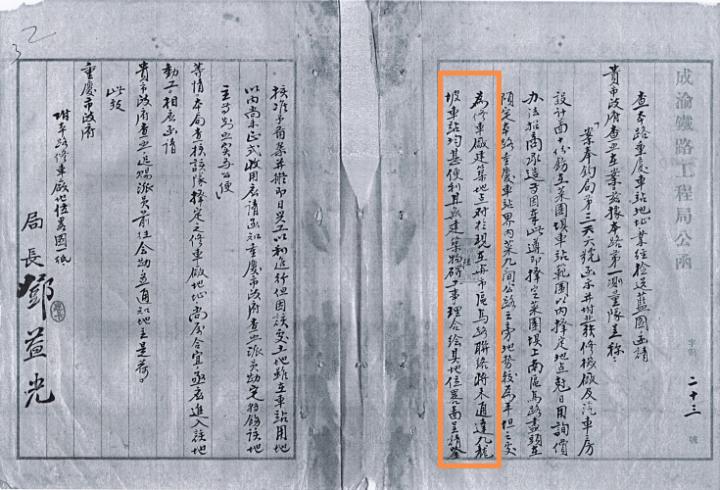 成渝鐵路工程局公函
字第二十三號
查本路重慶車站地址業經檢送藍圖函請
貴市政府查照在案茲據本路第一測量隊呈稱：
「案奉鈞局第三天六號函永并附裝修機廠及汽車房
設計圖十份飭在菜園壩車站範圍以內擇定地點尅日用詢價
辦法招商承造等因奉此遵即擇定菜園壩上南區馬路盡頭在
預定本路重慶車站界內菜九間公路之旁地勢較為平坦之處
為修車廠建築地点對於現在安市區馬路聯絡將來通達九龍
坡車站均甚便利且無建築物礙工事理合繪具地位畧圖呈請鑒
核准予備案并擬即日興工以利進行但因該處土地雖在車站用地
以內尚未正式收用懇請函知重慶市政府查照派員勘定物飭該地
主等知照實為公便」
等情本局查核該隊擇定之修車廠地址尚屬合宜亟應進入該地
動工相應函請
貴市政府查照迅賜派員前往會勘並通知地主是荷。
此致
重慶市政府
附本路修車廠地位畧圖一紙
局長鄧益光